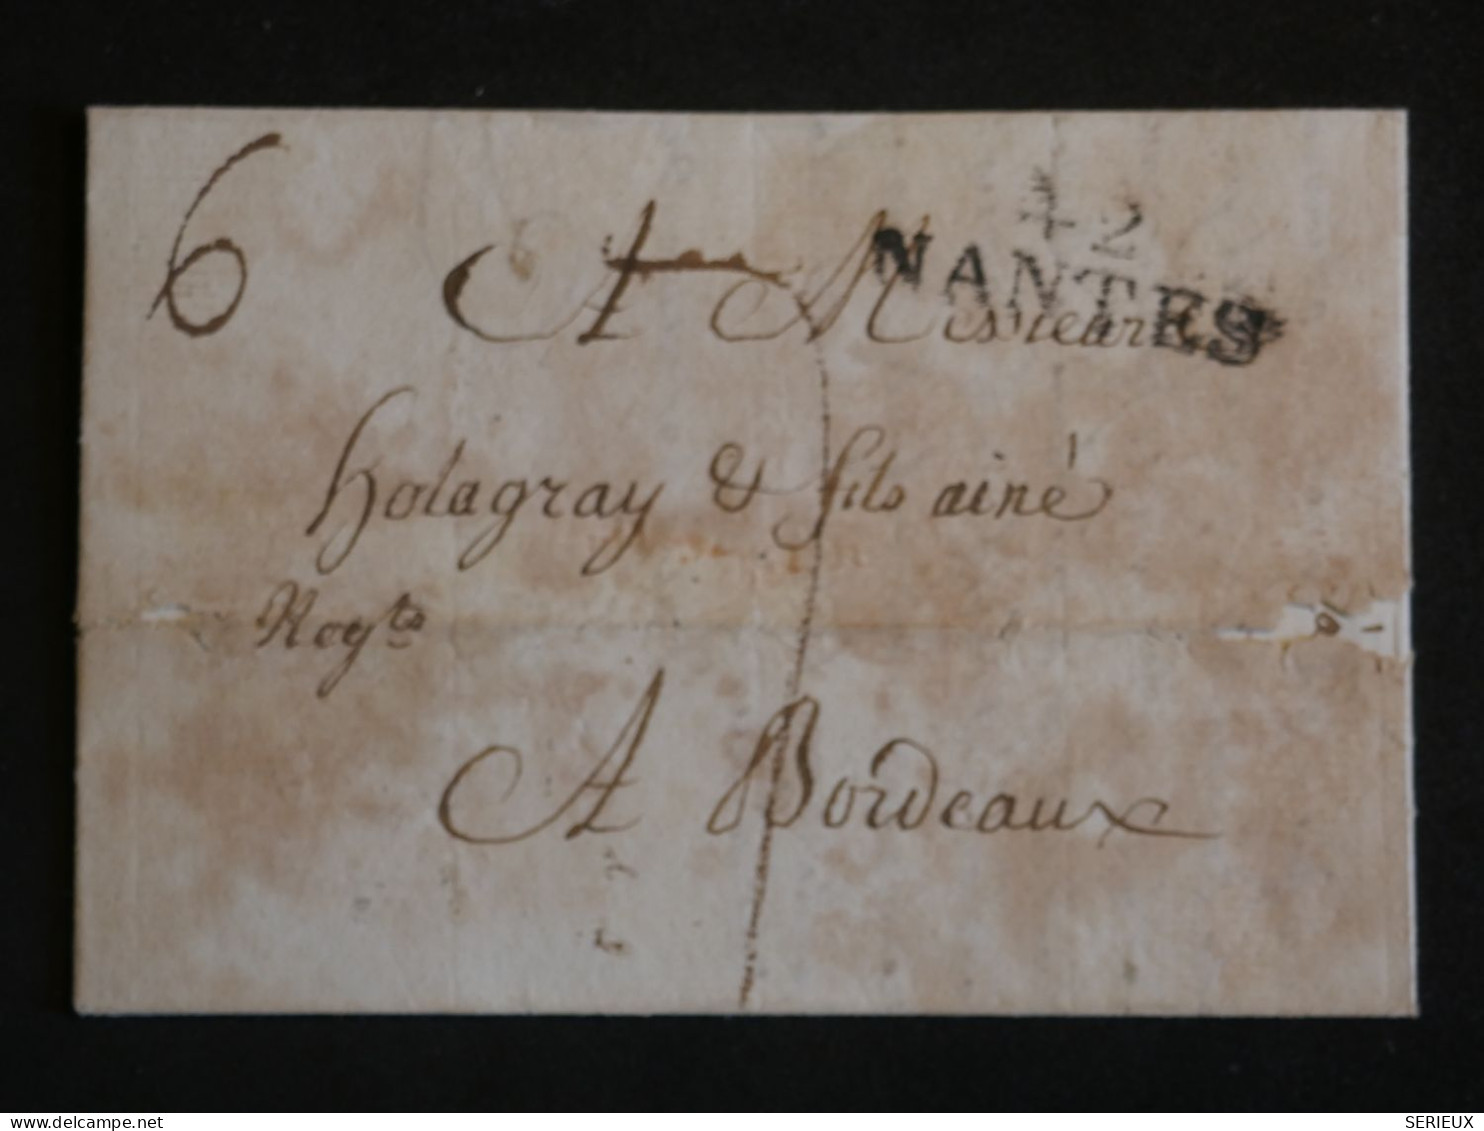 6
42
NANTES
A Messieurs
Holagray & fils ainé
Negts
A Bordeaux
SERIEUX